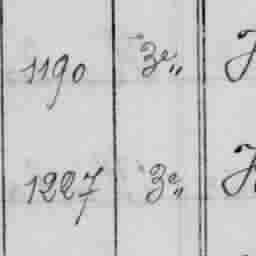 1190 3е„
1227 3е„